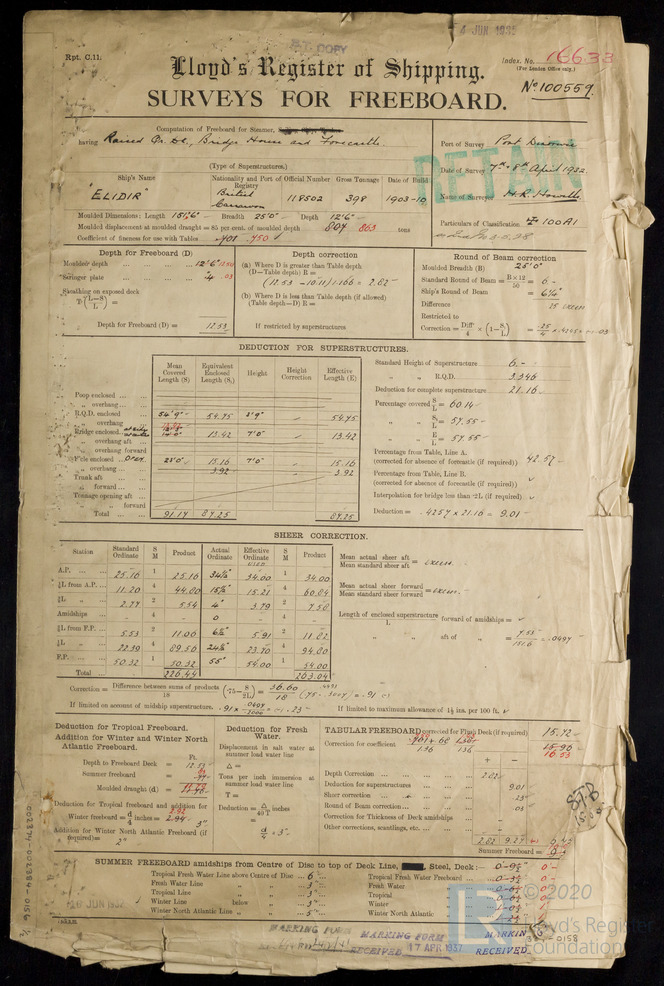 4 JUN 1932
COPY
Rpt. C.11.
Lloyd's Register of Shipping.
Index. No. 16633
(For London Office only.)
SURVEYS FOR FREEBOARD.
No 100559.
Computation of Freeboard for Steamer,
having Raised Qr. Dk., Bridge House and Forecastle.
(Type of Superstructures.)
Port of Survey
Date of Survey 7th & 8th April 1932
Name of Surveyor H.R. Howells
Particulars of Classification 100A1
Ship's Name
Nationality and Port of Registry
Official Number
Gross Tonnage
Date of Build
"ELIDIR"
British
Carnarvon
118502
398
1903-10
Moulded Dimensions: Length 151'6" Breadth 25'0" Depth 12'6"
Moulded displacement at moulded draught = 85 per cent. of moulded depth 804 863 tons
Coefficient of fineness for use with Tables .701 .750
Depth for Freeboard (D)
Moulded depth 12'6" 12.50
Stringer plate .03
Sheathing on exposed deck
T (L-S/L) =
Depth for Freeboard (D) = 12.53
Depth correction
(a) Where D is greater than Table depth
(D—Table depth) R =
(12.53 - 10.11) 1.166 = 2.82
(b) Where D is less than Table depth (if allowed)
(Table depth—D) R =
If restricted by superstructures
Round of Beam correction
Moulded Breadth (B) 25'0"
Standard Round of Beam = B×12/50 = 6
Ship's Round of Beam = 6¼"
Difference .25 excess
Restricted to
Correction = Diff/4 × (1-S₁/L) = .25/4 × .4245 = .03
DEDUCTION FOR SUPERSTRUCTURES.
Mean Covered Length (S)
Equivalent Enclosed Length (S₁)
Height
Height Correction
Effective Length (E)
Poop enclosed
" overhang
R.Q.D. enclosed 54'9" 54.75 3'9" 54.75
" overhang
Bridge enclosed 14'0" 13.42 7'0" 13.42
" overhang aft
" overhang forward
F'cle enclosed 22'0" 15.16 7'0" 15.16
" overhang 3.92 3.92
Trunk aft
" forward
Tonnage opening aft
" " forward
Total 91.17 87.25 87.25
Standard Height of Superstructure 6.
" " R.Q.D. 3.346
Deduction for complete superstructure 21.16
Percentage covered S/L = 60.14
" " S₁/L = 57.55
" " E/L = 57.55
Percentage from Table, Line A.
(corrected for absence of forecastle (if required)) 42.57
Percentage from Table, Line B.
(corrected for absence of forecastle (if required))
Interpolation for bridge less than ·2L (if required)
Deduction = .4257 × 21.16 = 9.01
SHEER CORRECTION.
Station
Standard Ordinate
S M
Product
Actual Ordinate
Effective Ordinate
S M
Product
A.P. 25.16 1 25.16 34½" 34.00 1 34.00
⅙L from A.P. 11.20 4 44.80 15½" 15.21 4 60.84
⅓L " 2.77 2 5.54 4" 3.79 2 7.58
Amidships 0 4
⅓L from F.P. 5.53 2 11.06 6½" 5.91 2 11.82
⅙L " 22.39 4 89.56 24½" 23.70 4 94.80
F.P. 50.32 1 50.32 55" 54.00 1 54.00
Total 226.44 263.04
Mean actual sheer aft
Mean standard sheer aft = excess.
Mean actual sheer forward
Mean standard sheer forward = excess.
Length of enclosed superstructure/L forward of amidships =
" " aft of " = 7.55/151.6 = .0497
Correction = Difference between sums of products/18 (·75 - S/2L) = 36.60/18 (.75 - .3007) = .91
If limited on account of midship superstructure. .91 × = .23
If limited to maximum allowance of 1½ ins. per 100 ft.
Deduction for Tropical Freeboard.
Addition for Winter and Winter North Atlantic Freeboard.
Ft.
Depth to Freeboard Deck = 12.53
Summer freeboard =
Moulded draught (d) =
Deduction for Tropical freeboard and addition for
Winter freeboard = d/4 inches =
Addition for Winter North Atlantic Freeboard (if required) = 2"
Deduction for Fresh Water.
Displacement in salt water at summer load water line
Δ =
Tons per inch immersion at summer load water line
T =
Deduction = Δ/40 T inches
d/4 = 3"
TABULAR FREEBOARD corrected for Flush Deck (if required) 15.72
Correction for coefficient
1.36 1.36
16.53
+ -
Depth Correction 2.82
Deduction for superstructures 9.01
Sheer correction .23
Round of Beam correction .03
Correction for Thickness of Deck amidships
Other corrections, scantlings, etc.
2.82 9.27
Summer Freeboard =
STB
SUMMER FREEBOARD amidships from Centre of Disc to top of Deck Line, Steel, Deck:—
Tropical Fresh Water Line above Centre of Disc 6"
Fresh Water Line " " 3"
Tropical Line " " 3"
Winter Line below " 3"
Winter North Atlantic Line " " 5"
Tropical Fresh Water Freeboard
Fresh Water "
Tropical "
Winter "
Winter North Atlantic "
JUN 1932
MARKING FORM
MARKING FORM
RECEIVED 17 APR 1937
MARKIN
RECEIVED
002374-002384-0156 ½
0158
© 2020
Lloyd's Register
Foundation